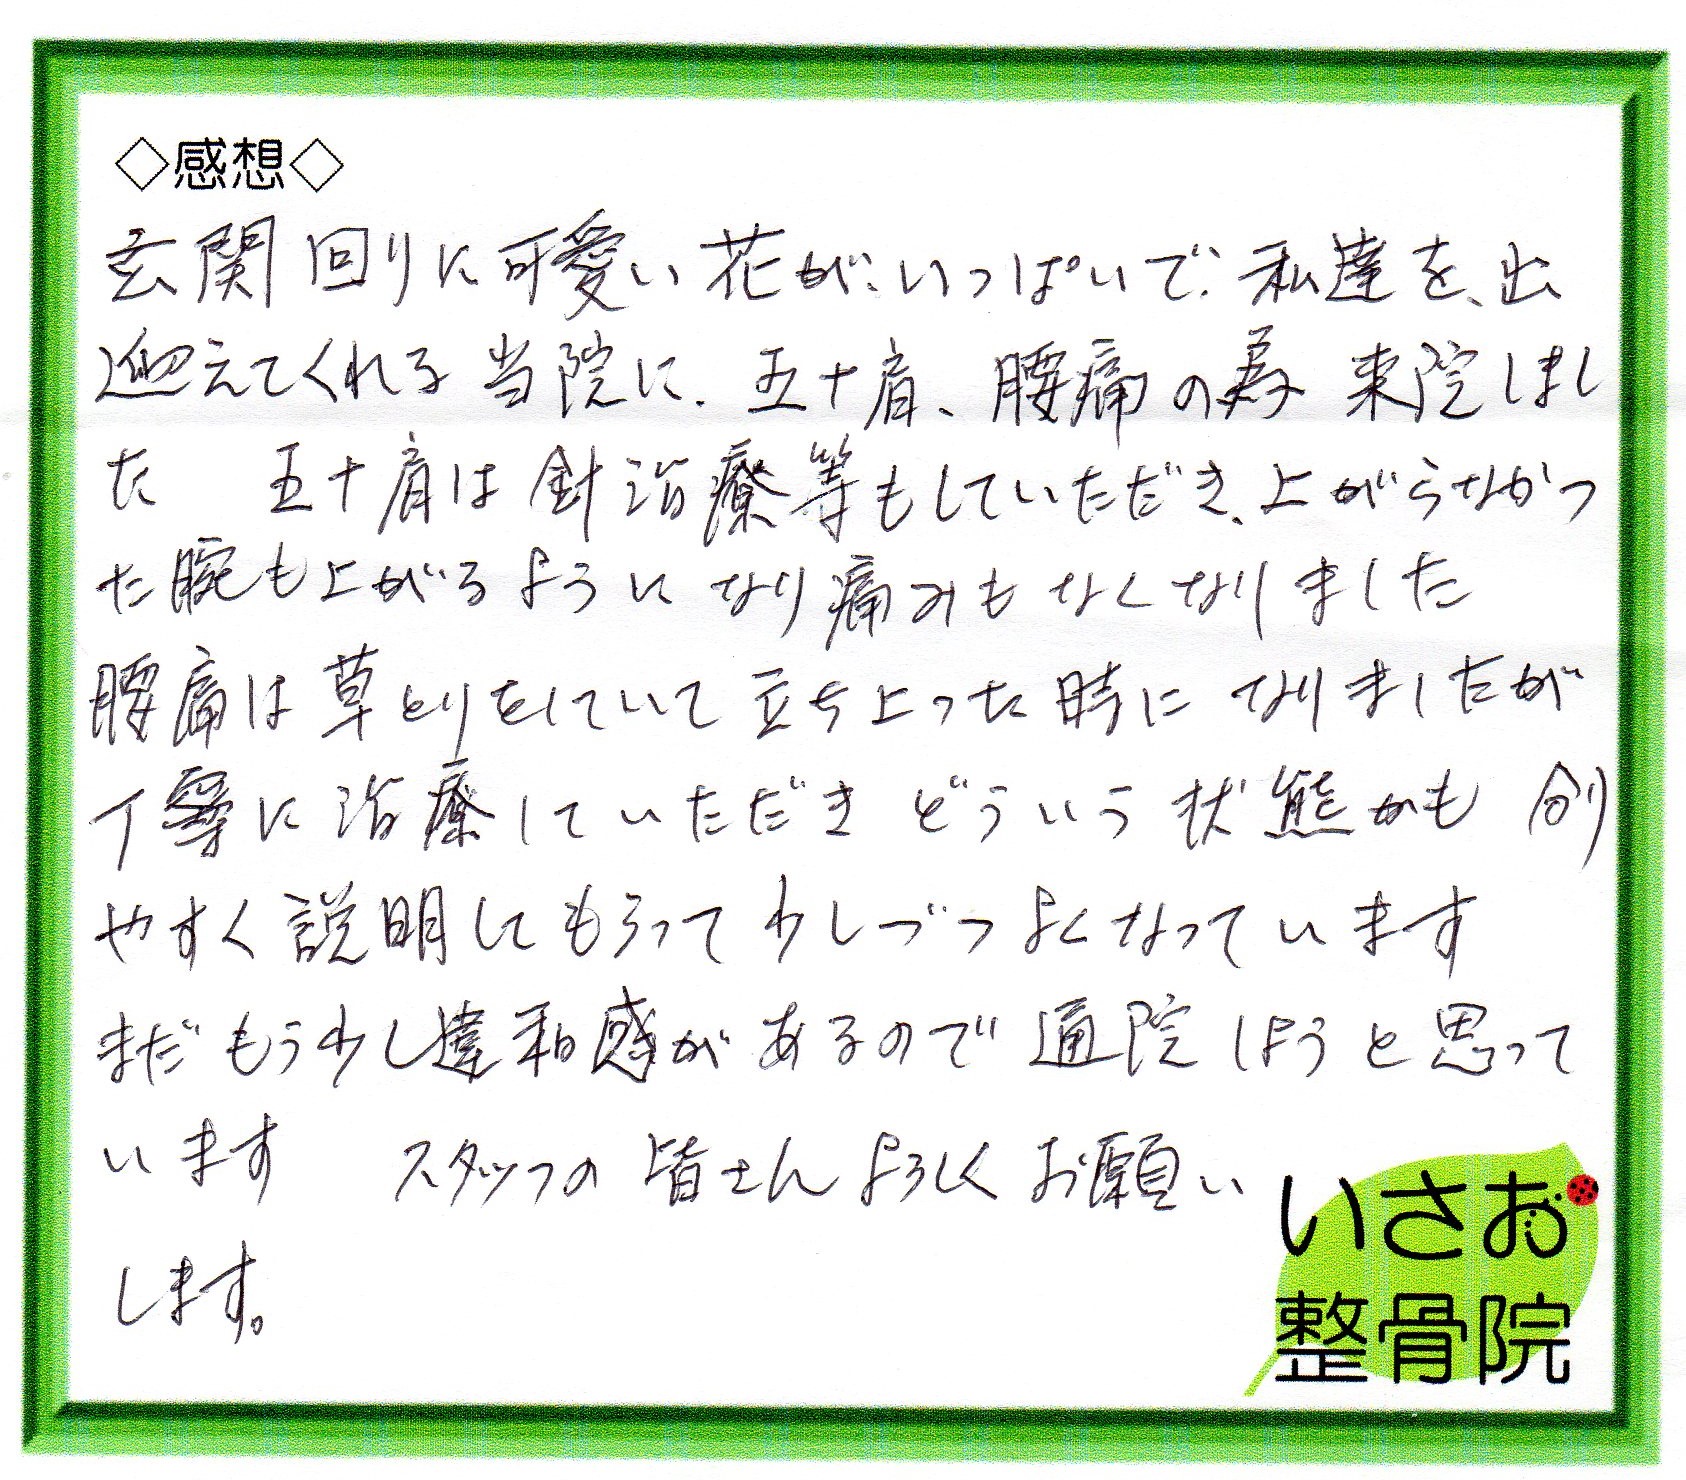 ◇感想◇
玄関回りに可愛い花が、いっぱいで、私達を、出
迎えてくれる当院に、五十肩、腰痛の為来院しまし
た 五十肩は針治療等もしていただき、上がらなかっ
た腕も上がるようになり痛みもなくなりました
腰痛は草とりをしていて立ち上った時になりましたが
丁寧に治療していただきどういう状態かも分り
やすく説明してもらって少しづつよくなっています
まだもう少し違和感があるので通院しようと思って
います スタッフの皆さんよろしくお願い
します。
いさお
整骨院